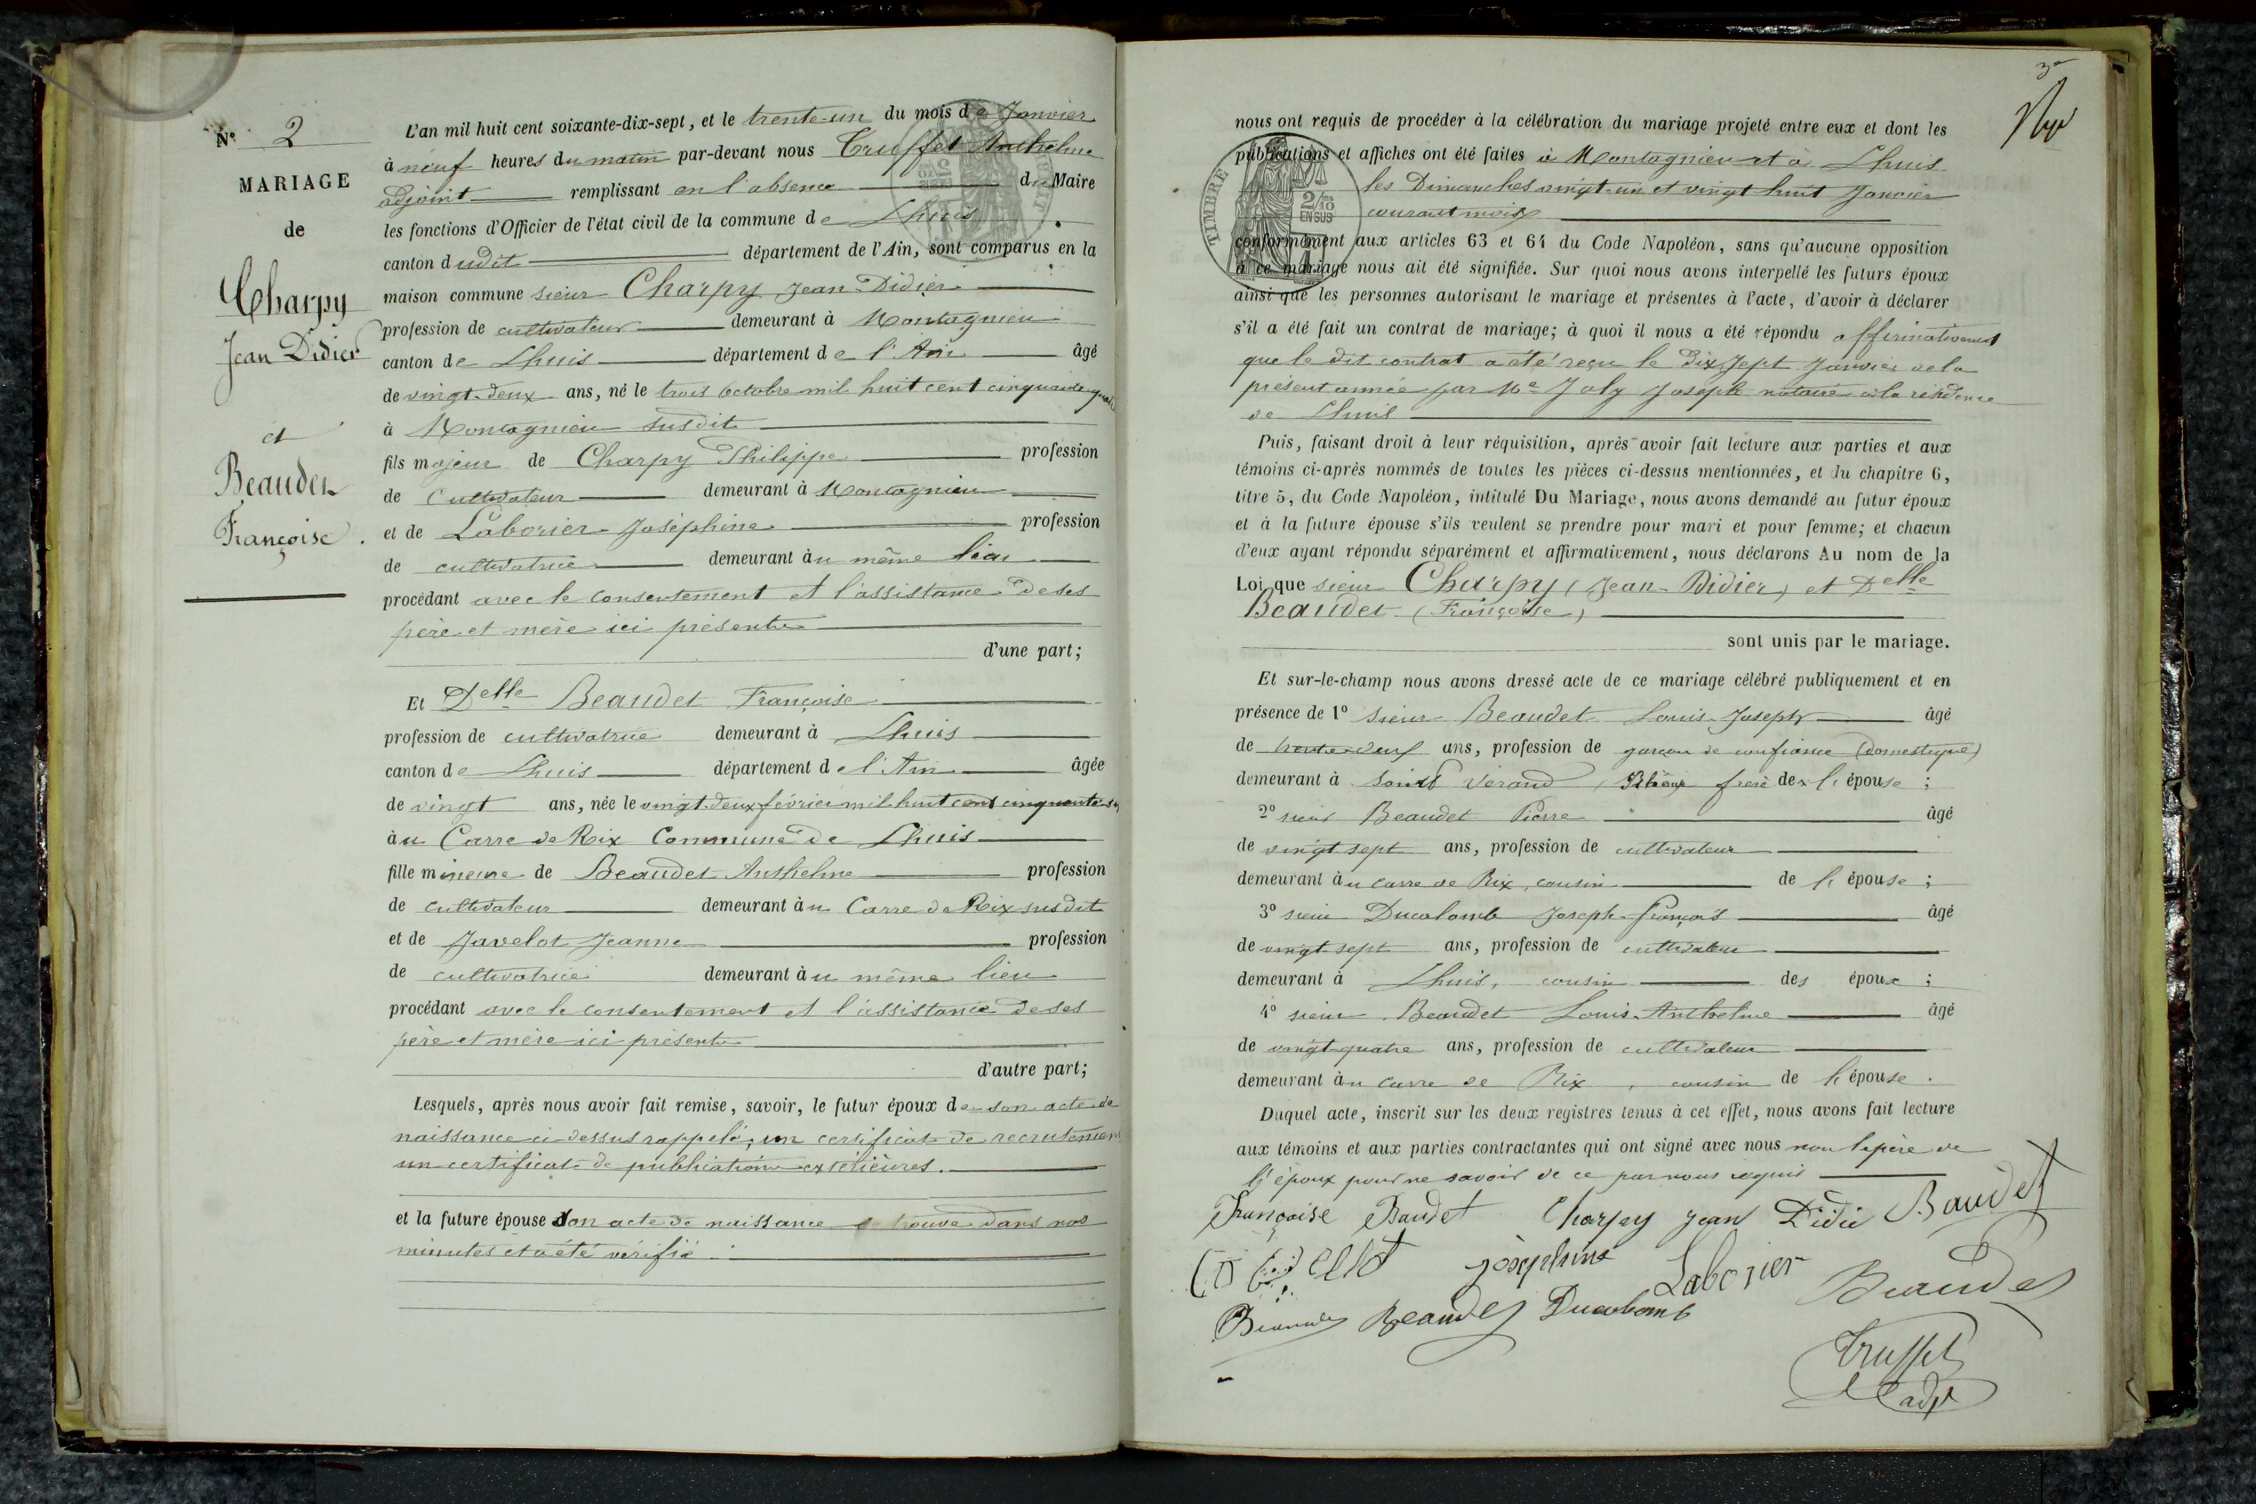 N° 2
MARIAGE
de
Charpy
Jean Didier
et
Beaudet
Françoise
L'an mil huit cent soixante-dix-sept, et le trente-un du mois de Janvier
à neuf heures du matin par-devant nous Truffet Anthelme
adjoint remplissant en l'absence du Maire
les fonctions d'Officier de l'état civil de la commune de Lhuis
canton dudit département de l'Ain, sont comparus en la
maison commune sieur Charpy Jean-Didier
profession de cultivateur demeurant à Montagnieu
canton de Lhuis département de l'Ain âgé
de vingt-deux ans, né le trois octobre mil huit cent cinquante quatre
à Montagnieu susdit
fils majeur de Charpy Philippe profession
de cultivateur demeurant à Montagnieu
et de Laborier Joséphine profession
de cultivatrice demeurant au même lieu
procédant avec le consentement et l'assistance de ses
père et mère ici présents
d'une part;
Et Delle Beaudet Françoise
profession de cultivatrice demeurant à Lhuis
canton de Lhuis département de l'Ain âgée
de vingt ans, née le vingt deux février mil huit cent cinquante
au Carre de Rix Commune de Lhuis
fille mineure de Beaudet Anthelme profession
de cultivateur demeurant au Carre de Rix susdit
et de Javelot Jeanne profession
de cultivatrice demeurant au même lieu
procédant avec le consentement et l'assistance de ses
père et mère ici présents
d'autre part;
Lesquels, après nous avoir fait remise, savoir, le futur époux de son acte de
naissance ci-dessus rappelé, un certificat de recrutement
un certificat de publications extérieures.
et la future épouse son acte de naissance se trouve dans nos
minutes et a été vérifié
3e
nous ont requis de procéder à la célébration du mariage projeté entre eux et dont les
publications et affiches ont été faites à Montagnieu et à Lhuis
les Dimanches vingt-un et vingt huit Janvier
courant mois
TIMBRE
2/10 EN SUS
conformément aux articles 63 et 64 du Code Napoléon, sans qu'aucune opposition
à ce mariage nous ait été signifiée. Sur quoi nous avons interpellé les futurs époux
ainsi que les personnes autorisant le mariage et présentes à l'acte, d'avoir à déclarer
s'il a été fait un contrat de mariage; à quoi il nous a été répondu affirmativement
que le dit contrat a été reçu le Dix Sept Janvier de la
présent année par Me Joly Joseph notaire à la résidence
de Lhuis
Puis, faisant droit à leur réquisition, après avoir fait lecture aux parties et aux
témoins ci-après nommés de toutes les pièces ci-dessus mentionnées, et du chapitre 6,
titre 5, du Code Napoléon, intitulé Du Mariage, nous avons demandé au futur époux
et à la future épouse s'ils veulent se prendre pour mari et pour femme; et chacun
d'eux ayant répondu séparément et affirmativement, nous déclarons Au nom de la
Loi que sieur Charpy (Jean-Didier) et Delle
Beaudet (Françoise)
sont unis par le mariage.
Et sur-le-champ nous avons dressé acte de ce mariage célébré publiquement et en
présence de 1° sieur Beaudet Louis-Joseph âgé
de ans, profession de garçon de confiance (domestique)
demeurant à Saint Vérand frère de l'épouse;
2° sieur Beaudet Pierre âgé
de vingt sept ans, profession de cultivateur
demeurant au carre de Rix, cousin de l'épouse;
3° sieur Ducolomb Joseph-François âgé
de vingt sept ans, profession de cultivateur
demeurant à Lhuis, cousin des époux;
4° sieur Beaudet Louis-Anthelme âgé
de vingt-quatre ans, profession de cultivateur
demeurant au carre de Rix, cousin de l'épouse.
Duquel acte, inscrit sur les deux registres tenus à cet effet, nous avons fait lecture
aux témoins et aux parties contractantes qui ont signé avec nous non le père de
l'époux pour ne savoir de ce par nous requis
Françoise Baudet Charpy Jean Didie Baudet
joséphine Laborier Beaudet
Beaudet Ducolomb
Truffet
adjt